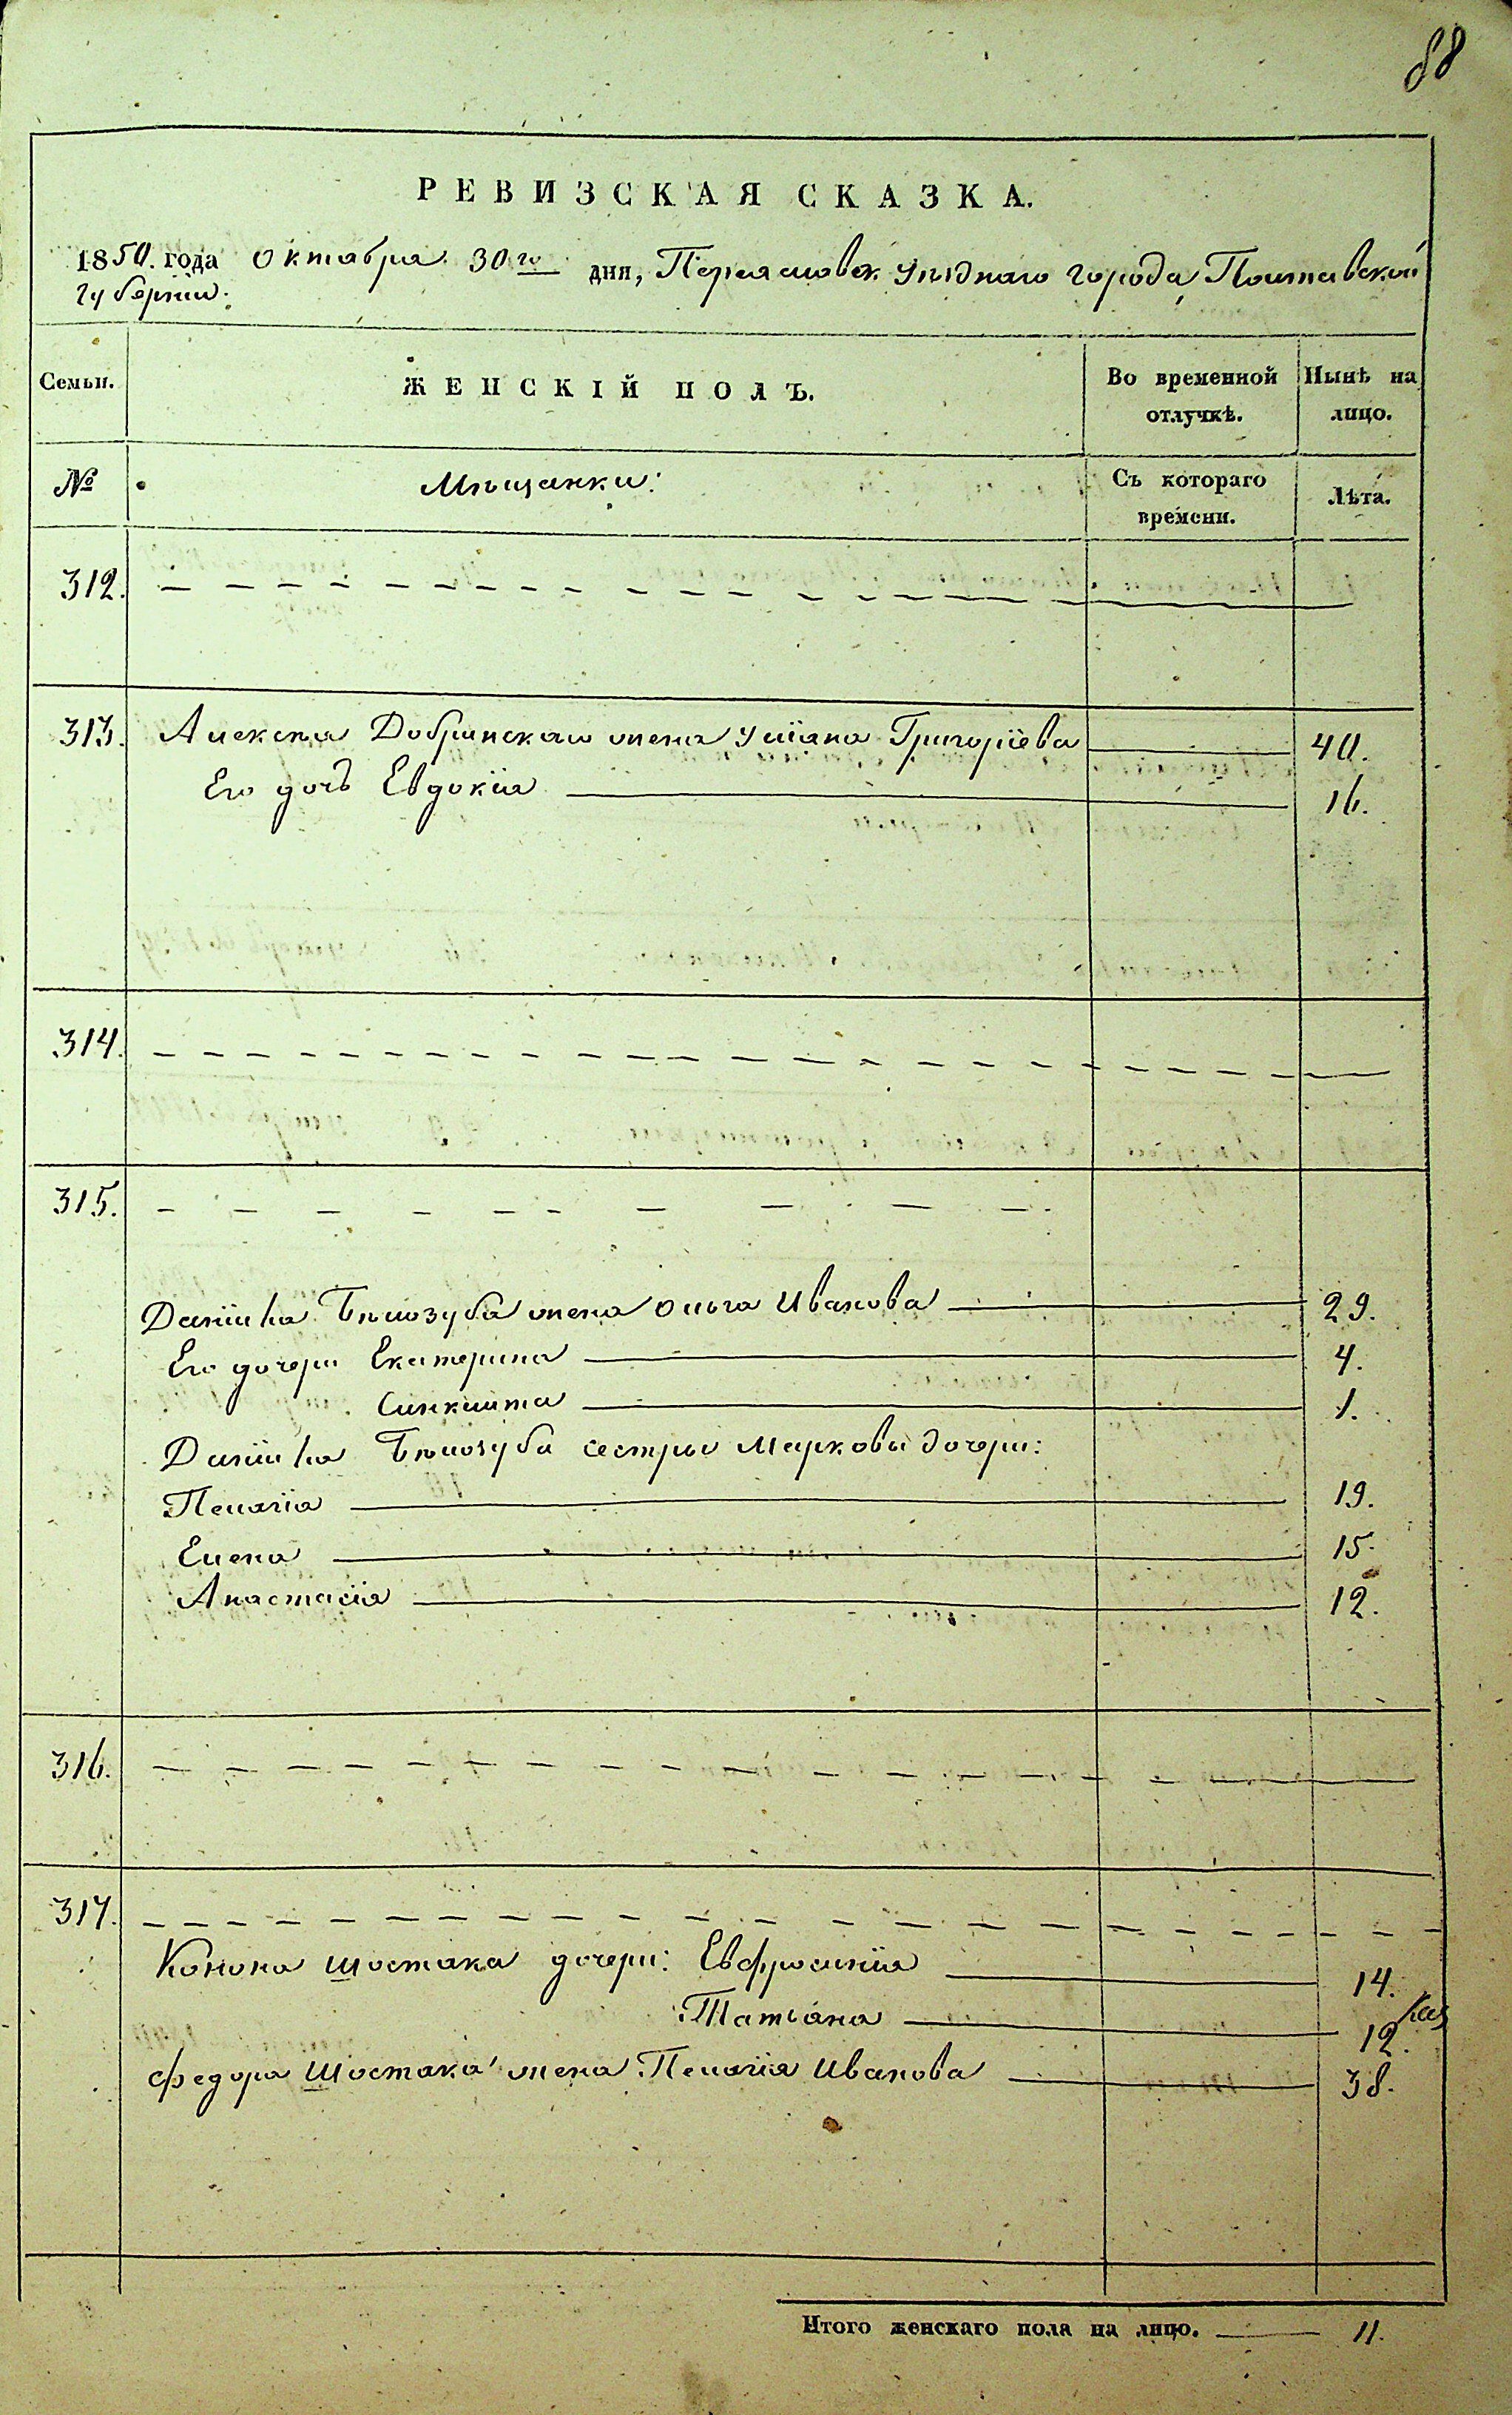 88
РЕВИЗСКАЯ СКАЗКА.
1850. года октября 30го дня, Переяслов: уѣзднаго города, Полтавской
губерніи:
Семьи.
ЖЕНСКІЙ ПОЛЪ.
Во временной отлучкѣ.
Нынѣ на лицо.
№
Мѣщанки:
Съ котораго времени.
Лѣта.
312.
313. Алексѣя Добринскаго жена Уліана Григоріева 40.
Его дочь Евдокія 16.
314.
315.
Даніила Бѣлозуба жена Ольга Иванова 29.
Его дочери Екатерина 4.
1.
Даніила Бѣлозуба сестры Марковы дочери:
Пелагія 19.
Елена 15.
Анастасія 12.
316.
317.
Конона Шостака дочери: Евфросинія 14.
Татіана 12.
Федора Шостака жена Пелагія Иванова 38.
Итого женскаго пола на лицо. 11.